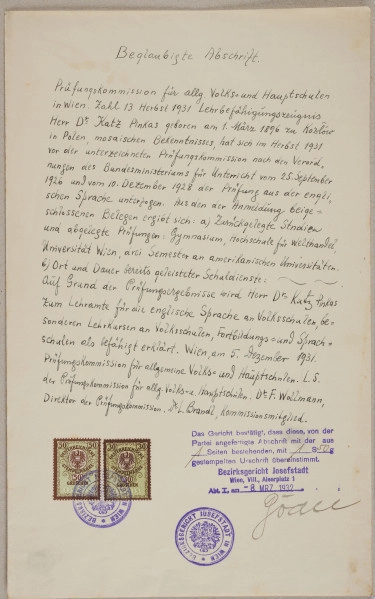 Beglaubigte Abschrift.
Prüfungskommission für allg. Volks= und Hauptschulen
in Wien. Zahl 13 Herbst 1931. Lehrbefähigungszeugnis
Herr Dr. Katz Pinkas geboren am 1. März 1896 zu Kozłów
in Polen, mosaischen Bekenntnisses, hat sich im Herbst 1931
vor der unterzeichneten Prüfungskommission nach den Verord=
nungen des Bundesministeriums für Unterricht vom 25. September
1926 und vom 10. Dezember 1928 der Prüfung aus der engli=
schen Sprache unterzogen. Aus den der Anmeldung beige=
schlossenen Belegen ergibt sich: a) Zurückgelegte Studien
und abgelegte Prüfungen: Gymnasium, Hochschule für Welthandel
Universität Wien, drei Semester an amerikanischen Universitäten.
b) Ort und Dauer bereits geleisteter Schuldienste:
Auf Grund der Prüfungsergebnisse wird Herr Dr. Katz Pinkas
zum Lehramte für die englische Sprache an Volksschulen, be=
sonderen Lehrkursen an Volksschulen, Fortbildungs= und Sprach=
schulen als befähigt erklärt. Wien, am 5. Dezember 1931.
Prüfungskommission für allgemeine Volks- und Hauptschulen. L.S.
der Prüfungskommission für allg. Volks- u. Hauptschulen. Dr. F. Wollmann,
Direktor der Prüfungskommission. Dr. L. Brandl, Kommissionsmitglied.
Das Gericht bestätigt, dass diese, von der
Partei angefertigte Abschrift mit der aus
1 Seiten bestehenden, mit 1 S g
gestempelten Urschrift übereinstimmt.
Bezirksgericht Josefstadt
Wien, VIII., Alserplatz 1
Abt. I, am - 8. MRZ. 1932
50 50
GROSCHEN GROSCHEN
BEZIRKSGERICHT JOSEFSTADT IN WIEN